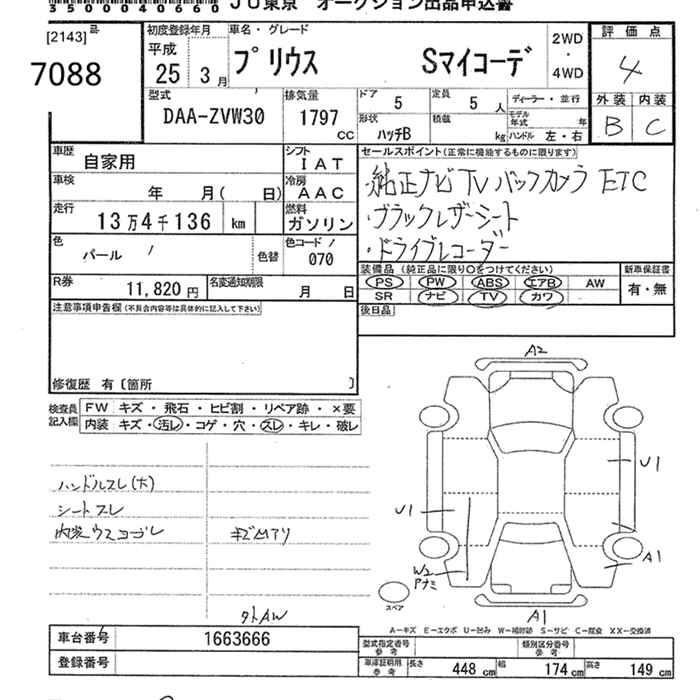 35000040660 JU東京 オークション出品申込書
[2143]
7088
初度登録年月
平成
25 3 月
車名・グレード
プリウス Sマイコーデ
2WD
・
4WD
評価点
4
外装 内装
B C
型式
DAA-ZVW30
排気量
1797
CC
ドア
5
定員
5 人
ディーラー・並行
形状
ハッチB
積載
kg
モデル年式 年
ハンドル 左・右
車歴
自家用
シフト
IAT
車検
年 月( 日)
冷房
AAC
走行
13万4千136 km
燃料
ガソリン
色
パール /
色替
色コード /
070
R券
11,820 円
名変通知期限
月 日
セールスポイント(正常に機能するものに限ります)
・純正ナビ TV バックカメラ ETC
・ブラックレザーシート
・ドライブレコーダー
装備品 (純正品に限り○をつけてください)
PS PW ABS エアB AW
SR ナビ TV カワ
新車保証書
有・無
後日品
注意事項申告欄(不具合内容等は具体的に記入して下さい)
修復歴 有〔箇所 〕
検査員
記入欄
FW キズ・飛石・ヒビ割・リペア跡・×要
内装 キズ・汚レ・コゲ・穴・スレ・キレ・破レ
ハンドルスレ(大)
シートスレ
内装ウスヨゴレ
キズ凹アリ
タトAW
A2
U1
U1
A1
W2
アナミ
A1
スペア
A―キズ E―エクボ U―凹み W―補修跡 S―サビ C―腐食 XX―交換済
車台番号 1663666
登録番号
型式指定番号
参考
類別区分番号
参考
車庫証明用
参考
長さ 448 cm 幅 174 cm 高さ 149 cm